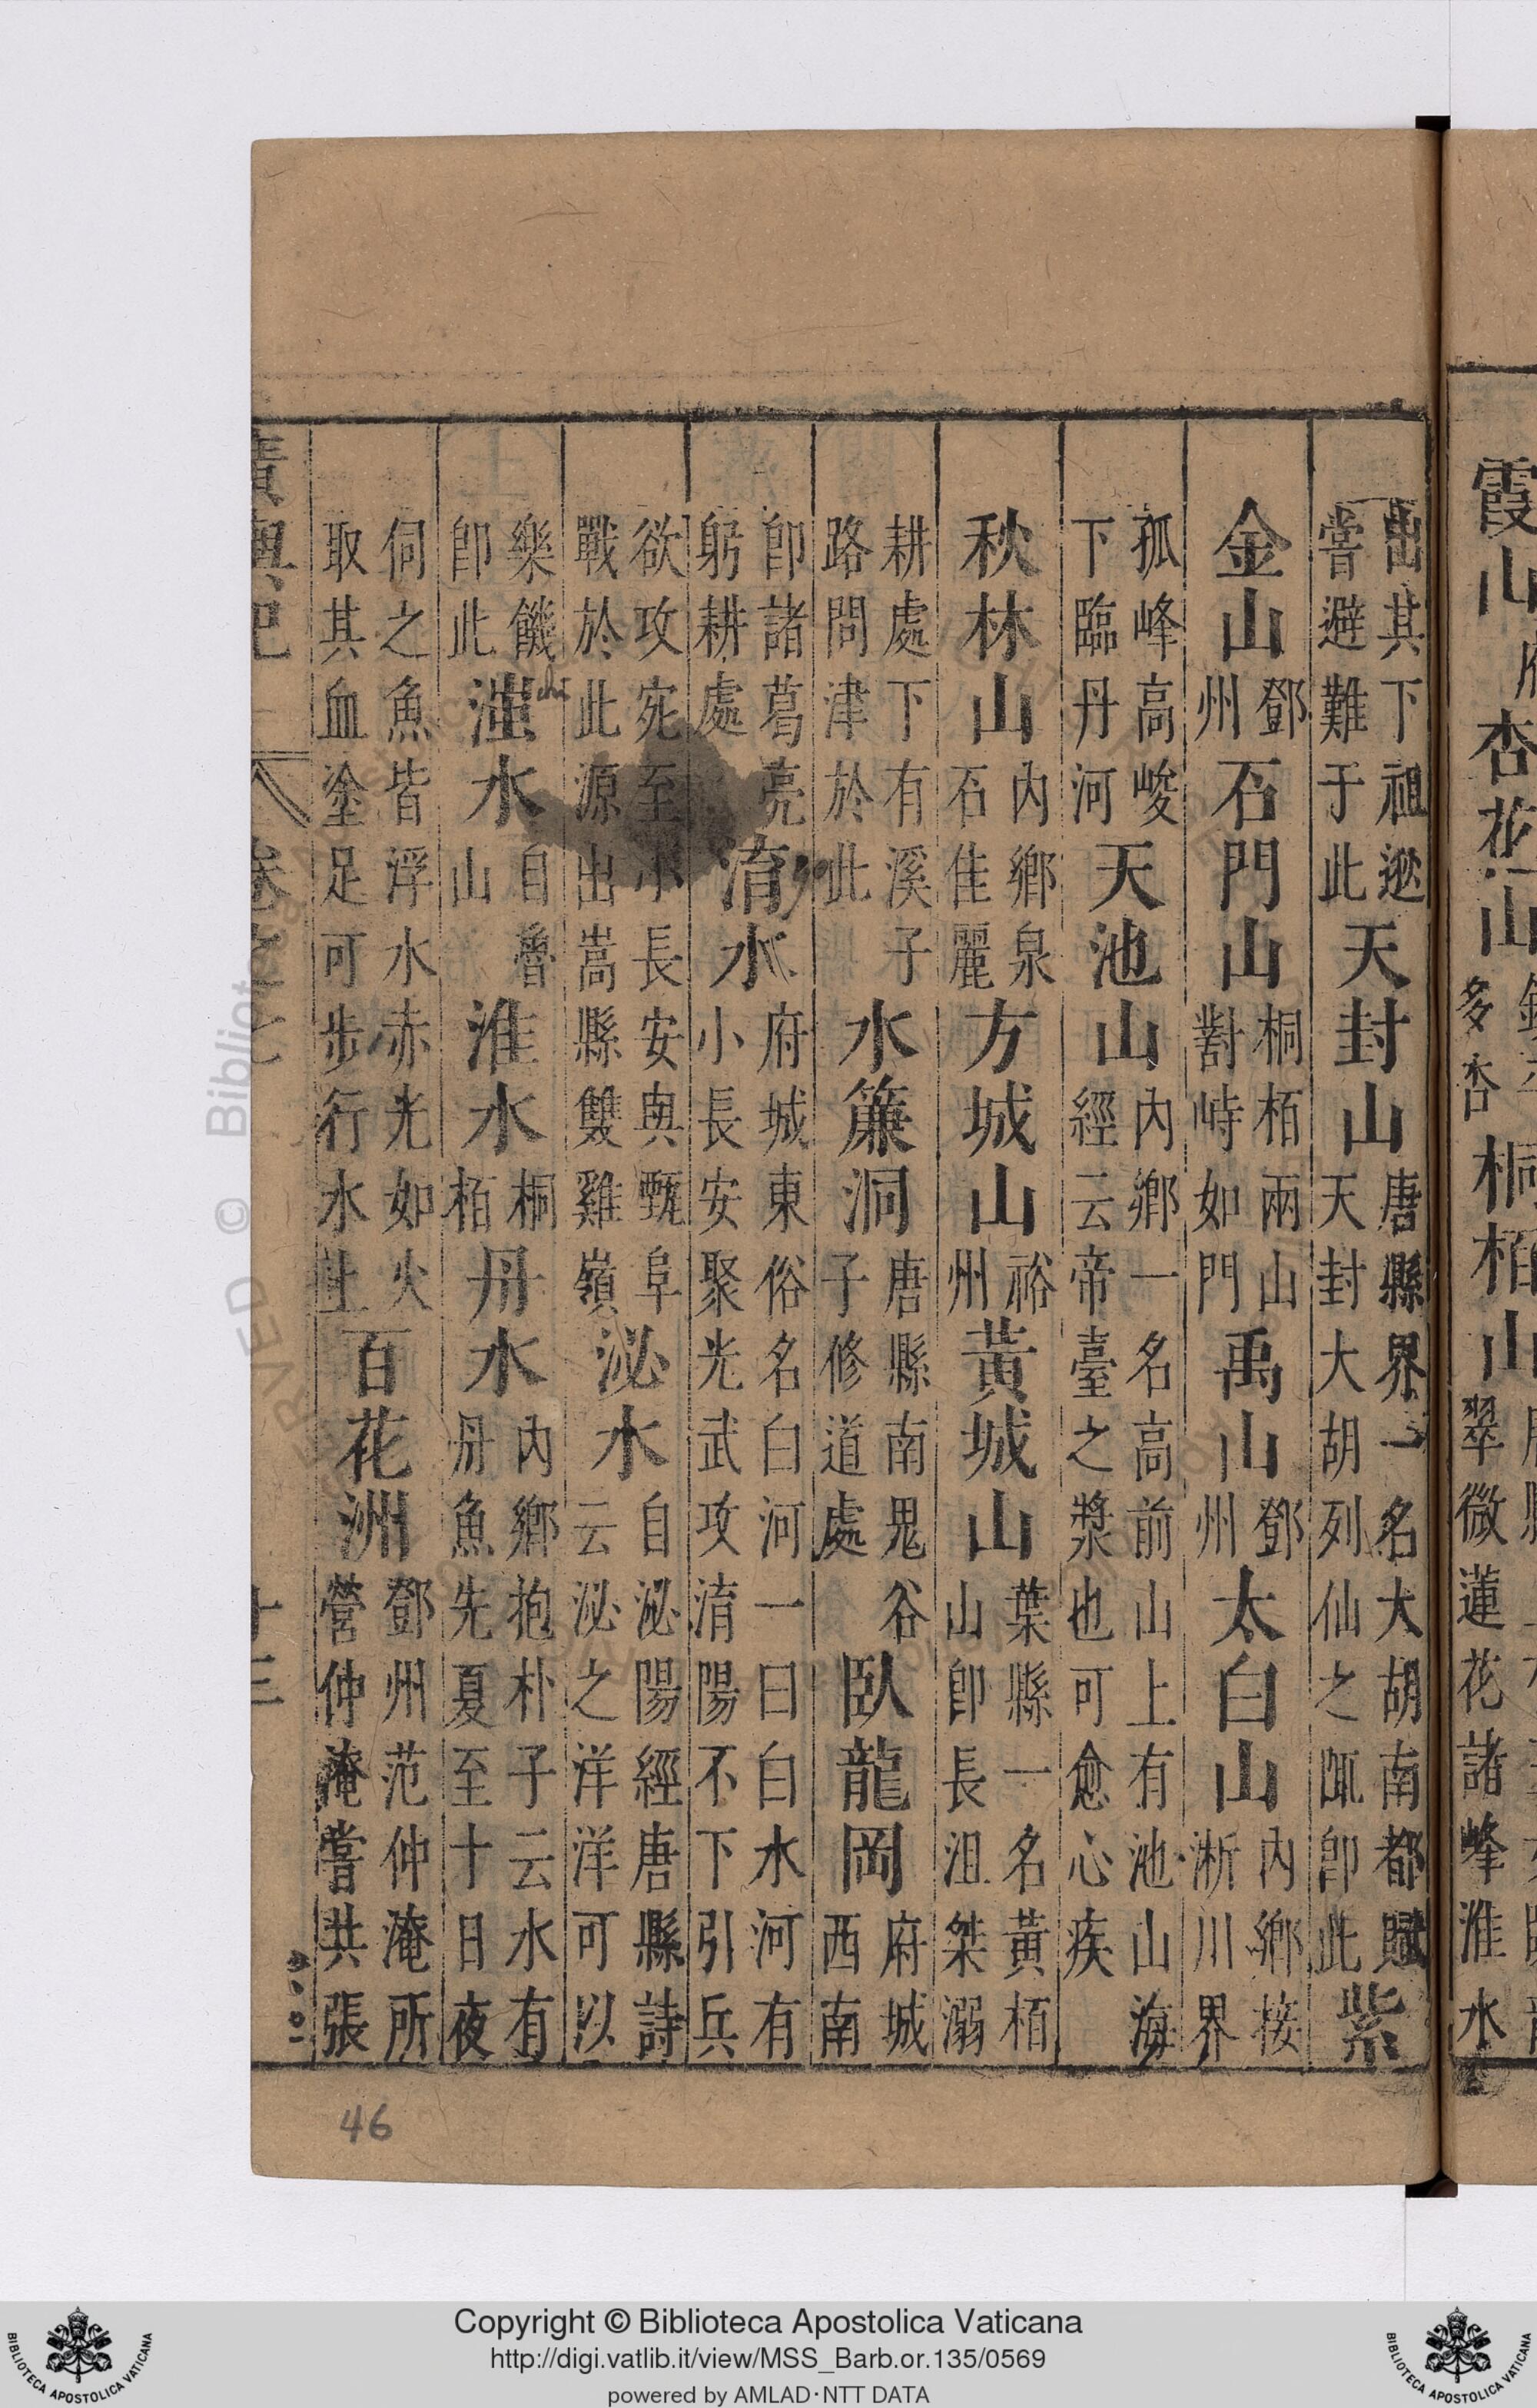 霞山 杏花山 多杏 桐栢山 翠微蓮花諸峰淮水
出其下祖逖嘗避難于此天封山唐縣界一名大胡南都賦天封大胡列仙之陬即此紫
金山鄧州石門山桐栢兩山對峙如門禹山鄧州太白山內鄉接淅川界
孤峰高峻下臨丹河天池山內鄉一名高前山上有池山海經云帝臺之漿也可愈心疾
秋林山內鄉泉石佳麗方城山裕州黃城山葉縣一名黃栢山即長沮桀溺
耕處下有溪子路問津於此水簾洞唐縣南鬼谷子修道處臥龍岡府城西南
即諸葛亮躬耕處淯水府城東俗名白河一曰白水河有小長安聚光武攻淯陽不下引兵
欲攻宛至小長安與甄阜戰於此源出嵩縣雙雞嶺泌水自泌陽經唐縣詩云泌之洋洋可以
樂饑即此滍水自魯山淮水桐栢丹水內鄉抱朴子云水有丹魚先夏至十日夜
伺之魚皆浮水赤光如火取其血塗足可步行水上百花洲鄧州范仲淹所營仲淹嘗共張
廣輿記 卷之七 十三
46
Copyright © Biblioteca Apostolica Vaticana
http://digi.vatlib.it/view/MSS_Barb.or.135/0569
powered by AMLAD·NTT DATA
BIBLIOTECA APOSTOLICA VATICANA
BIBLIOTECA APOSTOLICA VATICANA